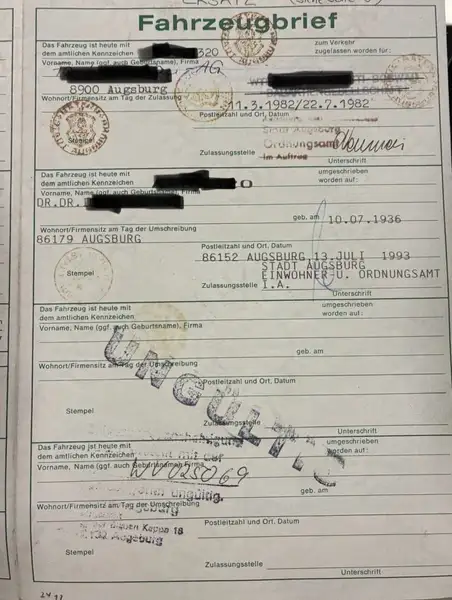 ERSATZ
Fahrzeugbrief
Das Fahrzeug ist heute mit
dem amtlichen Kennzeichen
320
zum Verkehr
zugelassen worden für:
Vorname, Name (ggf. auch Geburtsname), Firma
AG
8900 Augsburg
Wohnort/Firmensitz am Tag der Zulassung
11.3.1982/22.7.1982
Postleitzahl und Ort, Datum
Stadt Augsburg
Ordnungsamt
Im Auftrag
Stempel
Zulassungsstelle
Unterschrift
Das Fahrzeug ist heute mit
dem amtlichen Kennzeichen
umgeschrieben
worden auf:
Vorname, Name (ggf. auch Geburtsname), Firma
DR.DR.
geb. am 10.07.1936
Wohnort/Firmensitz am Tag der Umschreibung
86179 AUGSBURG
Postleitzahl und Ort, Datum
86152 AUGSBURG, 13.JULI 1993
STADT AUGSBURG
EINWOHNER-U. ORDNUNGSAMT
Stempel
Zulassungsstelle I.A.
Unterschrift
Das Fahrzeug ist heute mit
dem amtlichen Kennzeichen
umgeschrieben
worden auf:
Vorname, Name (ggf. auch Geburtsname), Firma
geb. am
Wohnort/Firmensitz am Tag der Umschreibung
Postleitzahl und Ort, Datum
UNGÜLTIG
Stempel
Zulassungsstelle
Unterschrift
Das Fahrzeug ist heute mit
dem amtlichen Kennzeichen
umgeschrieben
worden auf:
mit der
Vorname, Name (ggf. auch Geburtsname), Firma
WV025069
ungültig.
geb. am
Wohnort/Firmensitz am Tag der Umschreibung
Augsburg
Postleitzahl und Ort, Datum
blauen Kappe 18
Augsburg
Stempel
Zulassungsstelle
Unterschrift